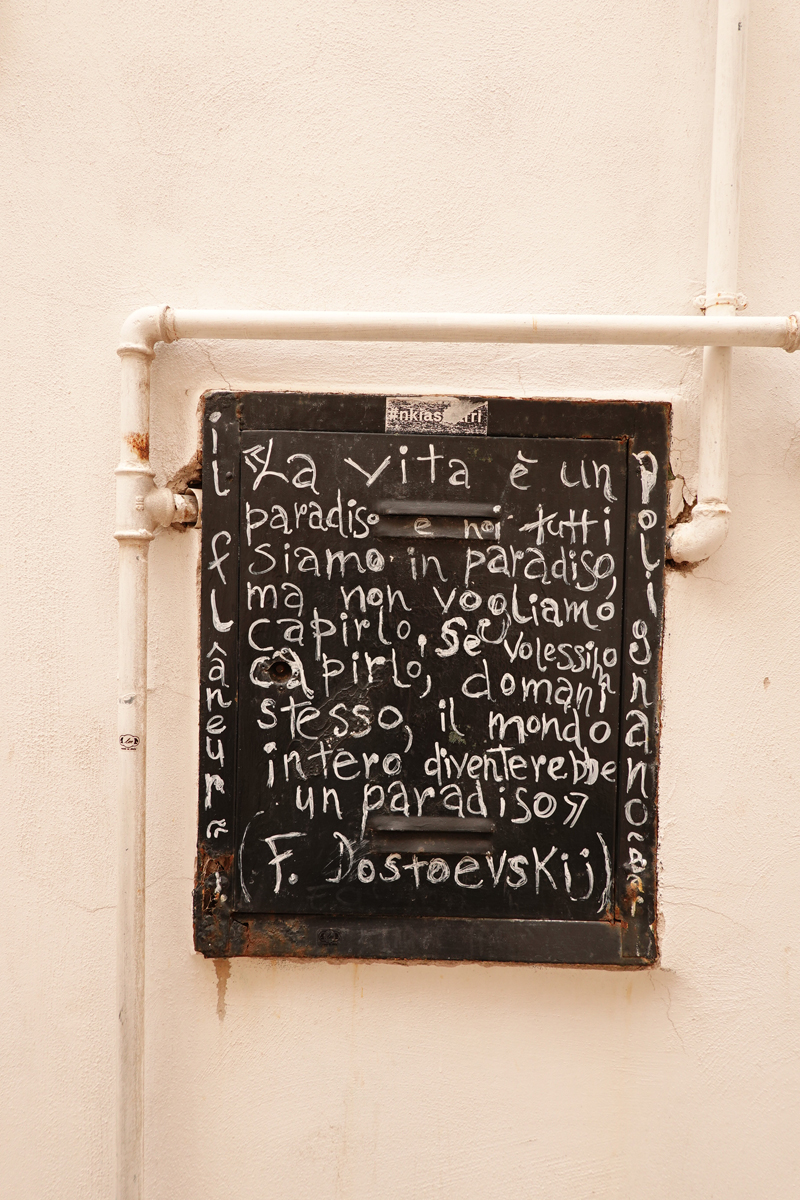 «La vita è un
paradiso e noi tutti
siamo in paradiso,
ma non vogliamo
capirlo, se volessimo
capirlo, domani
stesso, il mondo
intero diventerebbe
un paradiso»
(F. Dostoevskij)
il flâneur
polignano